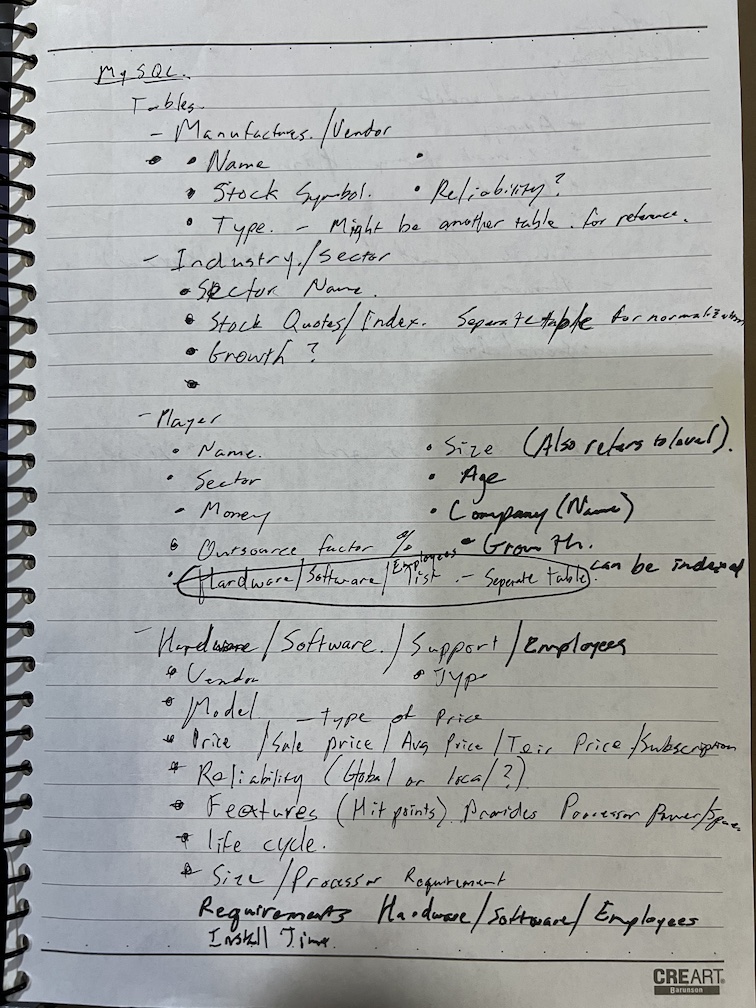 MySQL.
Tables.
- Manufactures. / Vendor
• Name •
• Stock Symbol. • Reliability?
• Type. - Might be another table. for reference.
- Industry. / Sector
• Sector Name.
• Stock Quotes / Index. Separate table for normalization
• Growth ?
- Player
• Name. • Size (Also refers to level).
• Sector • Age
• Money • Company (Name)
• Outsource factor % • Growth.
• Hardware / Software / Employees list. - Separate table. can be indexed
- Hardware / Software. / Support / Employees
• Vendor • Type
• Model - Type of Price
• Price / Sale price / Avg Price / Teir Price / Subscription
• Reliability (Global or local?)
• Features (Hit points) Provides Processor Power/Space
• life cycle.
• Size / Processor Requirement
Requirements Hardware / Software / Employees
Install Time.
CREART
Barunson